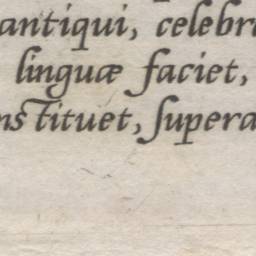 antiqui, celebr
linguæ faciet,
nstituet, ſupera